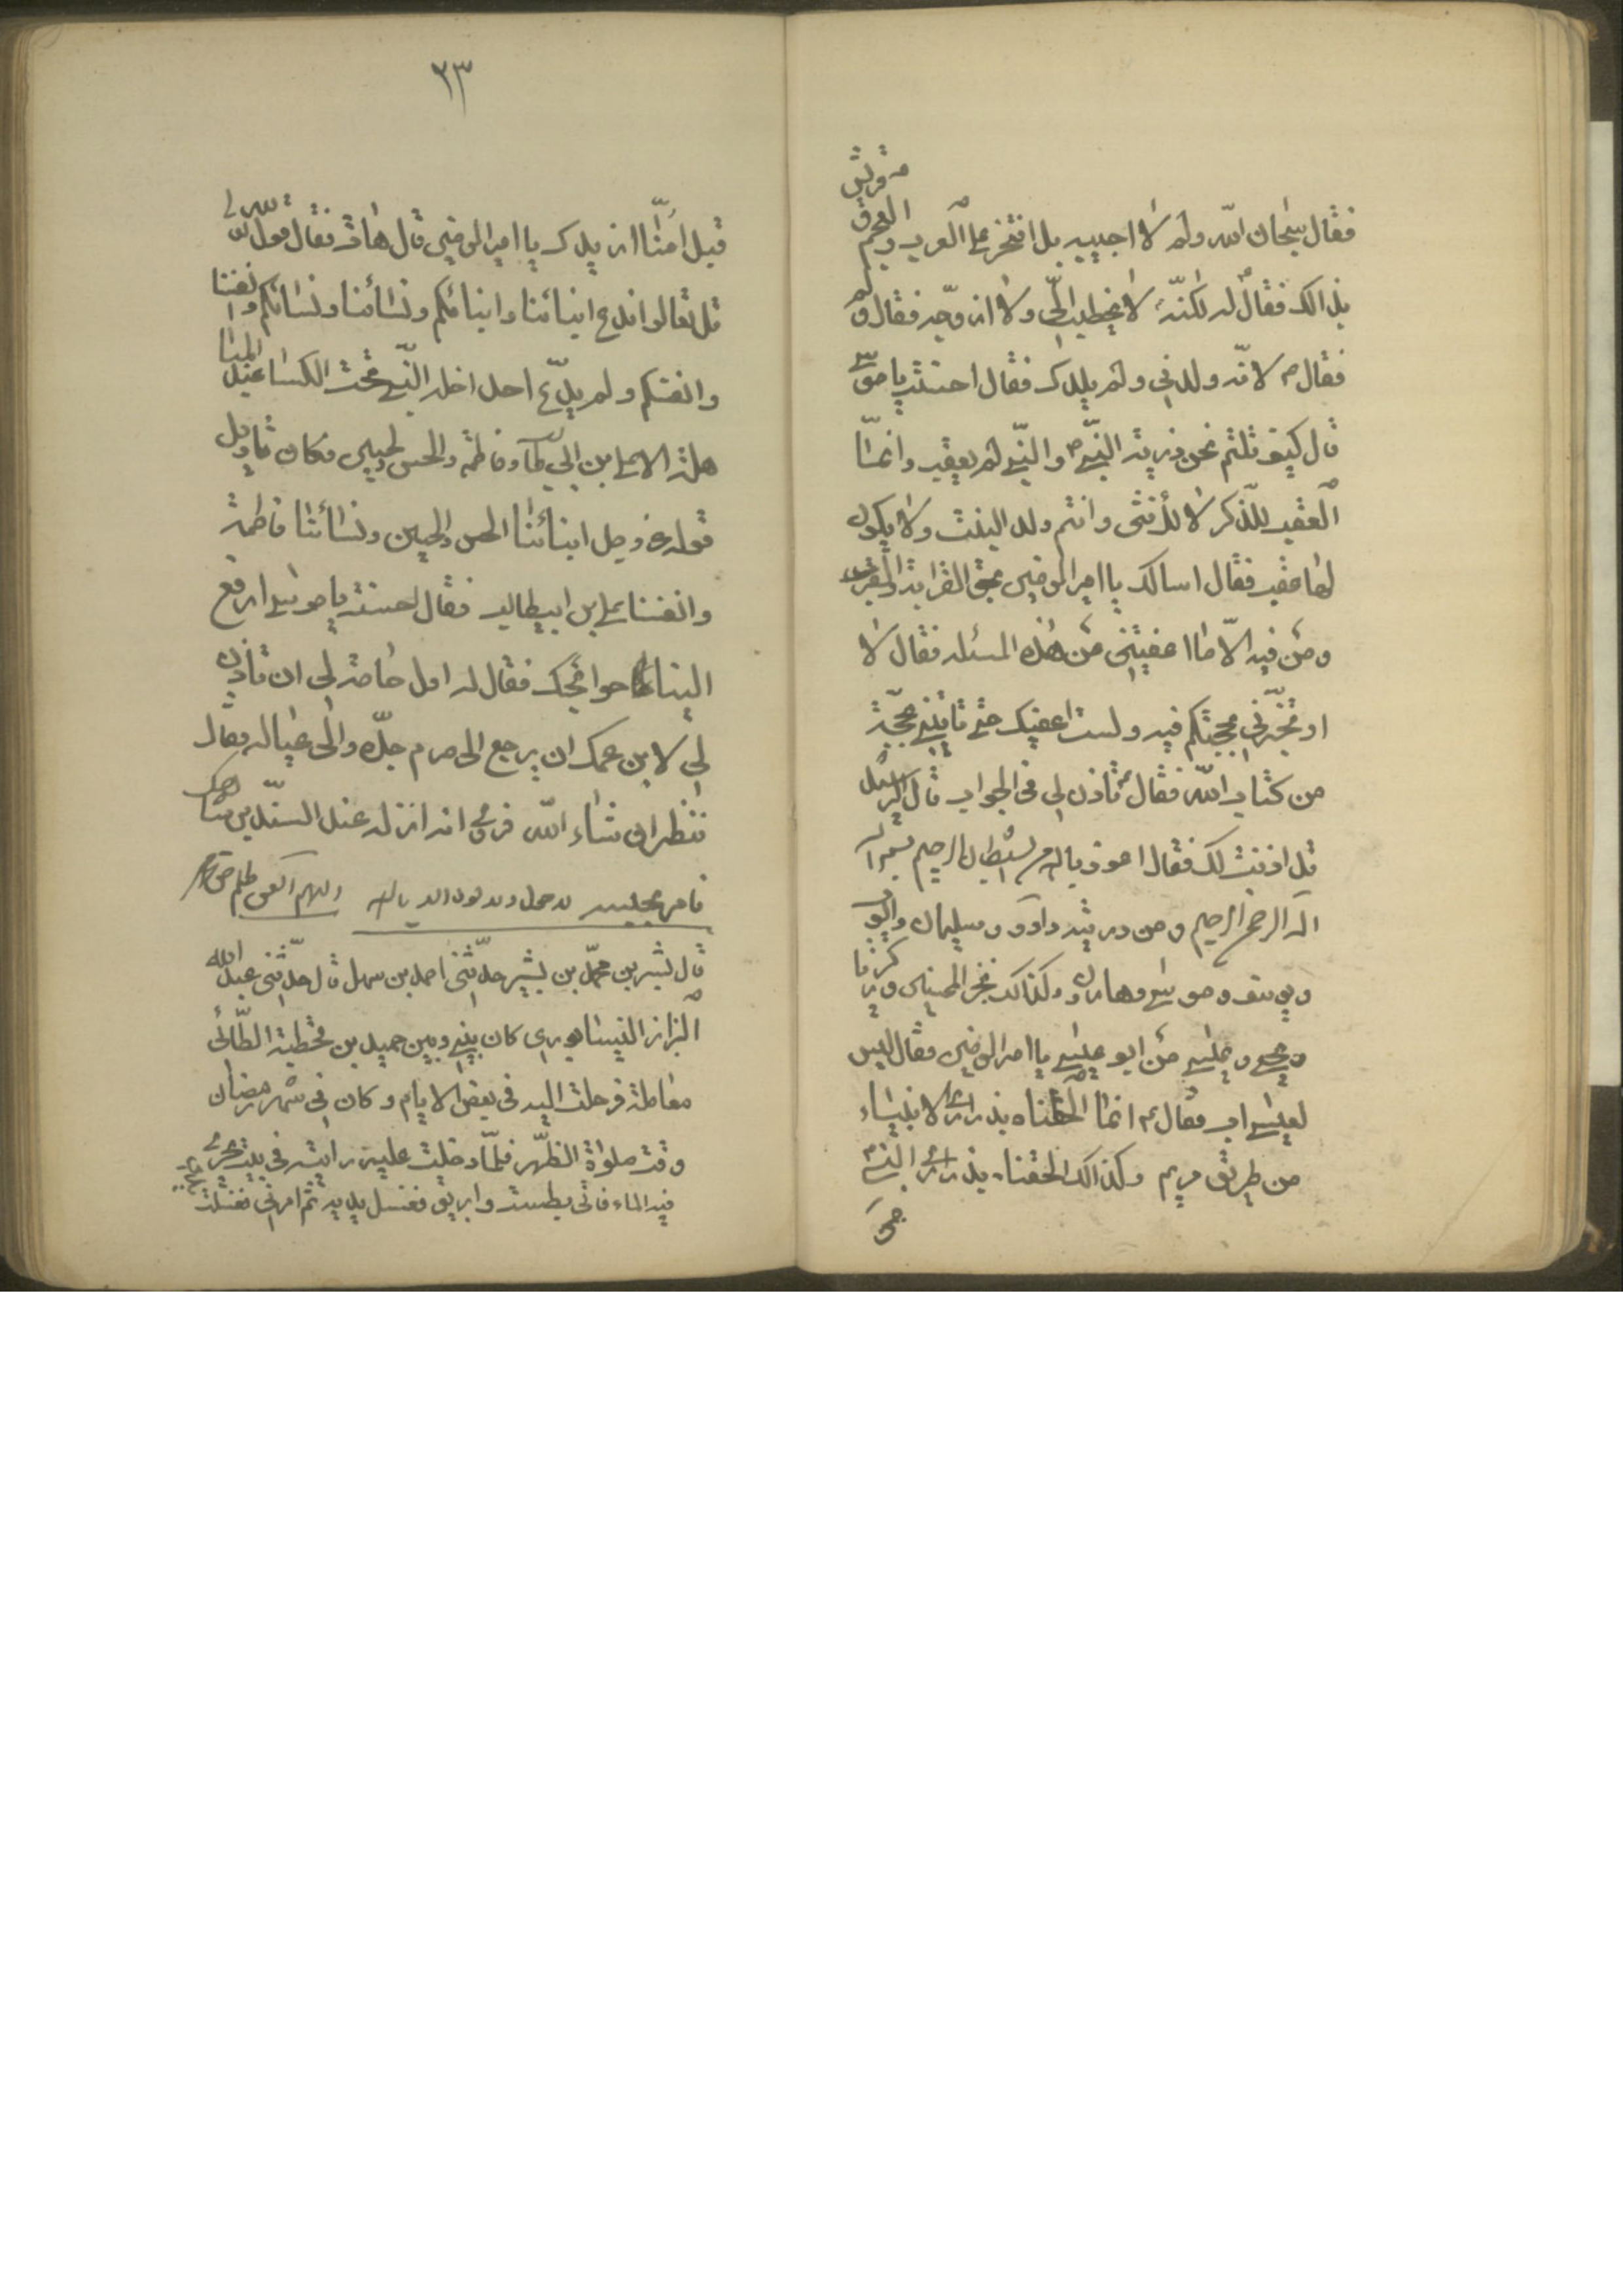 فقال سبحان الله ولم لا اجيبه بل افتخر على العرب والعجم وقريش
بذالك فقال له لكنّه لا يخطب الىّ ولا ازوّجه فقال ولم
فقال م لانّه ولدنى ولم يلدك فقال احسنت يا موسى
قال كيف قلتم نحن ذرية النبىّ ص والنبىّ لم يعقب وانّما
العقب للذكر لا للأنثى وانتم ولد البنت ولا يكون
لها عقب فقال اسالك يا امير المومنين بحق القرابة والقبر
ومن فيه الّا ما اعفيتنى من هذه المسئله فقال لا
او تخبّرنى بحجتكم فيه ولست اعفيك حتى تاتينى بحجّة
من كتاب الله فقال م تاذن لى فى الجواب قال الرشيد
قل اذنت لك فقال اعوذ بالله من الشيطان الرجيم بسم الله
الله الرحمن الرحيم ومن ذريته داود وسليمان وايوب
ويوسف وموسى وهارون وكذلك نجزى المحسنين وزكريا
ويحيى وعيسى من ابو عيسى يا امير المومنين فقال ليس
لعيسى اب فقال م انما الحقناه بذرارى الانبياء
من طريق مريم وكذالك الحقنا بذرارى النبى م
من
٢٣
قبل امّنا ازيدك يا امير المومنين قال هات فقال قول الله تعالى
قل تعالوا ندع ابنائنا وابنائكم ونسائنا ونسائكم وانفسنا
وانفسكم ولم يدّع احد ادخله النبى تحت الكسا عند المباهله
هلة الا على بن ابى طالب وفاطمه والحسن والحسين فكان تاويل
قوله عز وجل ابنائنا الحسن والحسين ونسائنا فاطمة
وانفسنا على بن ابيطالب فقال احسنت يا موسى ارفع
الينا حوائجك فقال له اول حاجة لى ان تاذن
لى لابن عمك ان يرجع الى حرم جدّه والى عياله فقال
ننظر ان شاء الله فروى انه انزله عند السندى بن شاهك
قال بشر بن محمّد بن بشير حدّثنى احمد بن سهل قال حدّثنى عبد الله
البزاز النيسابورى كان بينى وبين حميد بن قحطبة الطّائى
معاملة فرحلت اليه فى بعض الايام وكان فى شهر رمضان
وقت صلوة الظّهر فلمّا دخلت عليه رايته فى بيت يجرى
فيه الماء فاتى بطست وابريق فغسل يديه ثم امرنى فغسلت